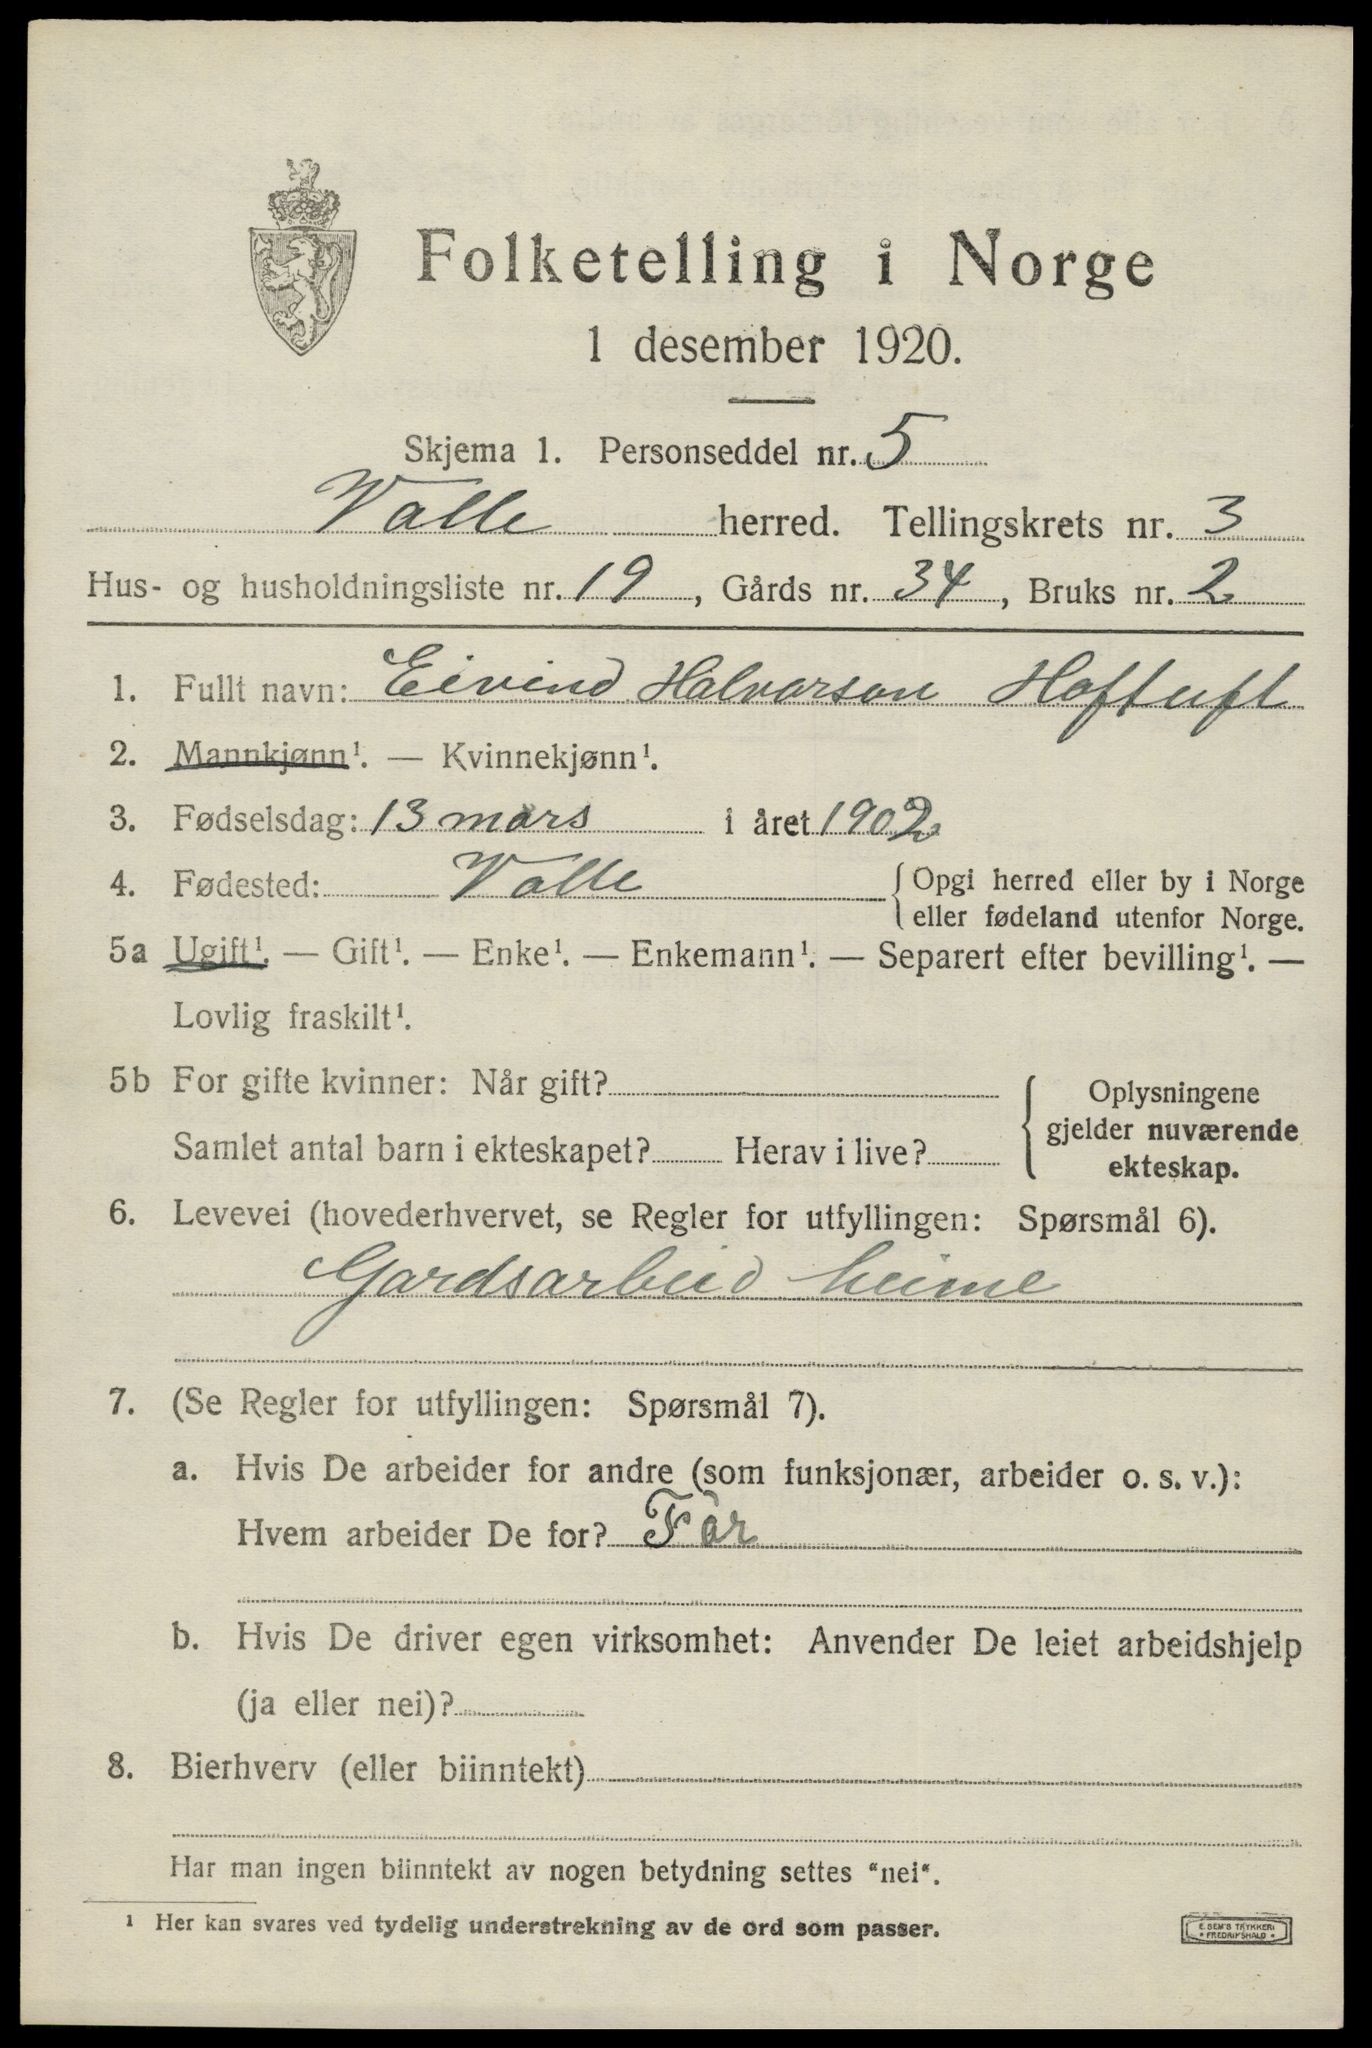 Folketelling i Norge
1 desember 1920.
Skjema 1. Personseddel nr. 5
Valle herred. Tellingskrets nr. 3
Hus- og husholdningsliste nr. 19, Gårds nr. 34, Bruks nr. 2
1. Fullt navn: Eivind Halvorson Hoftuft
2. Mannkjønn¹. — Kvinnekjønn¹.
3. Fødselsdag: 13 mars i året 1902
4. Fødested: Valle {Opgi herred eller by i Norge
eller fødeland utenfor Norge.
5a Ugift¹. — Gift¹. — Enke¹. — Enkemann¹. — Separert efter bevilling¹. —
Lovlig fraskilt¹.
5b For gifte kvinner: Når gift? { Oplysningene
gjelder nuværende
Samlet antal barn i ekteskapet? Herav i live?
ekteskap.
6. Levevei (hovederhvervet, se Regler for utfyllingen: Spørsmål 6).
Gardsarbeid heime
7. (Se Regler for utfyllingen: Spørsmål 7).
a. Hvis De arbeider for andre (som funksjonær, arbeider o. s. v.):
Hvem arbeider De for? Far
b. Hvis De driver egen virksomhet: Anvender De leiet arbeidshjelp
(ja eller nei)?
8. Bierhverv (eller biinntekt)
Har man ingen biinntekt av nogen betydning settes "nei".
¹ Her kan svares ved tydelig understrekning av de ord som passer.
E. SEM'S TRYKKERI
• FREDRIKSHALD •